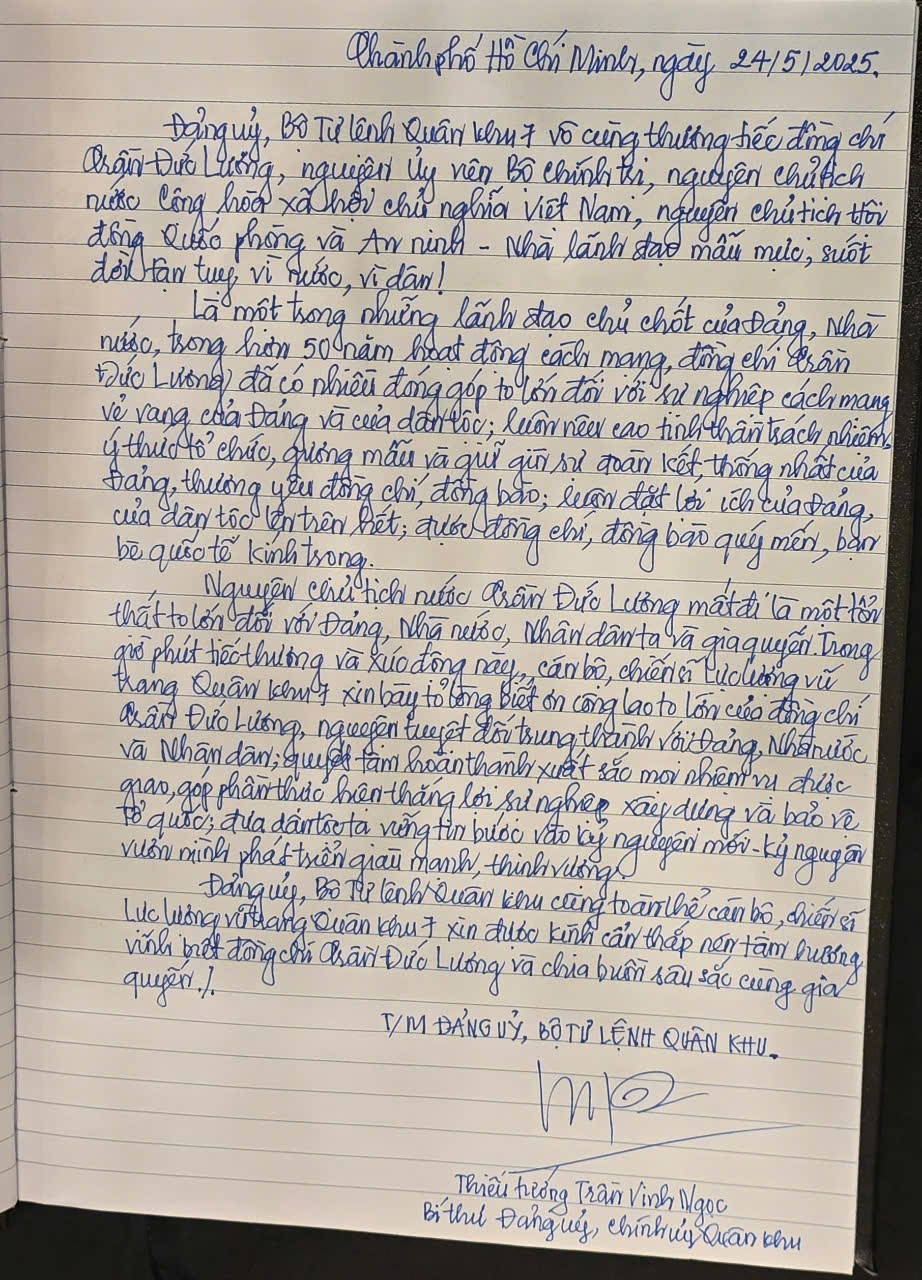 Thành phố Hồ Chí Minh, ngày 24/5/2025.
Đảng uỷ, Bộ Tư lệnh Quân khu 7 vô cùng thương tiếc đồng chí
Trần Đức Lương, nguyên Ủy viên Bộ Chính trị, nguyên chủ tịch
nước Cộng hòa xã hội chủ nghĩa Việt Nam, nguyên chủ tịch Hội
đồng Quốc phòng và An ninh - Nhà lãnh đạo mẫu mực, suốt
đời tận tuỵ, vì nước, vì dân!
Là một trong những lãnh đạo chủ chốt của Đảng, Nhà
nước, trong hơn 50 năm hoạt động cách mạng, đồng chí Trần
Đức Lương đã có nhiều đóng góp to lớn đối với sự nghiệp cách mạng
vẻ vang của Đảng và của dân tộc; luôn nêu cao tinh thần trách nhiệm,
ý thức tổ chức, gương mẫu và giữ gìn sự đoàn kết, thống nhất của
Đảng, thương yêu đồng chí, đồng bào; luôn đặt lợi ích của Đảng,
của dân tộc lên trên hết; được đồng chí, đồng bào quý mến, bạn
bè quốc tế kính trọng.
Nguyên chủ tịch nước Trần Đức Lương mất đi là một tổn
thất to lớn đối với Đảng, Nhà nước, Nhân dân ta và gia quyến. Trong
giờ phút tiếc thương và xúc động này, cán bộ, chiến sĩ Lực lượng vũ
trang Quân khu 7 xin bày tỏ lòng biết ơn công lao to lớn của đồng chí
Trần Đức Lương, nguyện tuyệt đối trung thành với Đảng, Nhà nước
và Nhân dân; quyết tâm hoàn thành xuất sắc mọi nhiệm vụ được
giao, góp phần thực hiện thắng lợi sự nghiệp xây dựng và bảo vệ
Tổ quốc; đưa dân tộc ta vững tin bước vào kỷ nguyên mới - kỷ nguyên
vươn mình phát triển giàu mạnh, thịnh vượng.
Đảng uỷ, Bộ Tư lệnh Quân khu cùng toàn thể cán bộ, chiến sĩ
Lực lượng vũ trang Quân khu 7 xin được kính cẩn thắp nén tâm hương
vĩnh biệt đồng chí Trần Đức Lương và chia buồn sâu sắc cùng gia
quyến./.
T/M ĐẢNG UỶ, BỘ TƯ LỆNH QUÂN KHU.
Thiếu tướng Trần Vinh Ngọc
Bí thư Đảng uỷ, Chính uỷ Quân khu